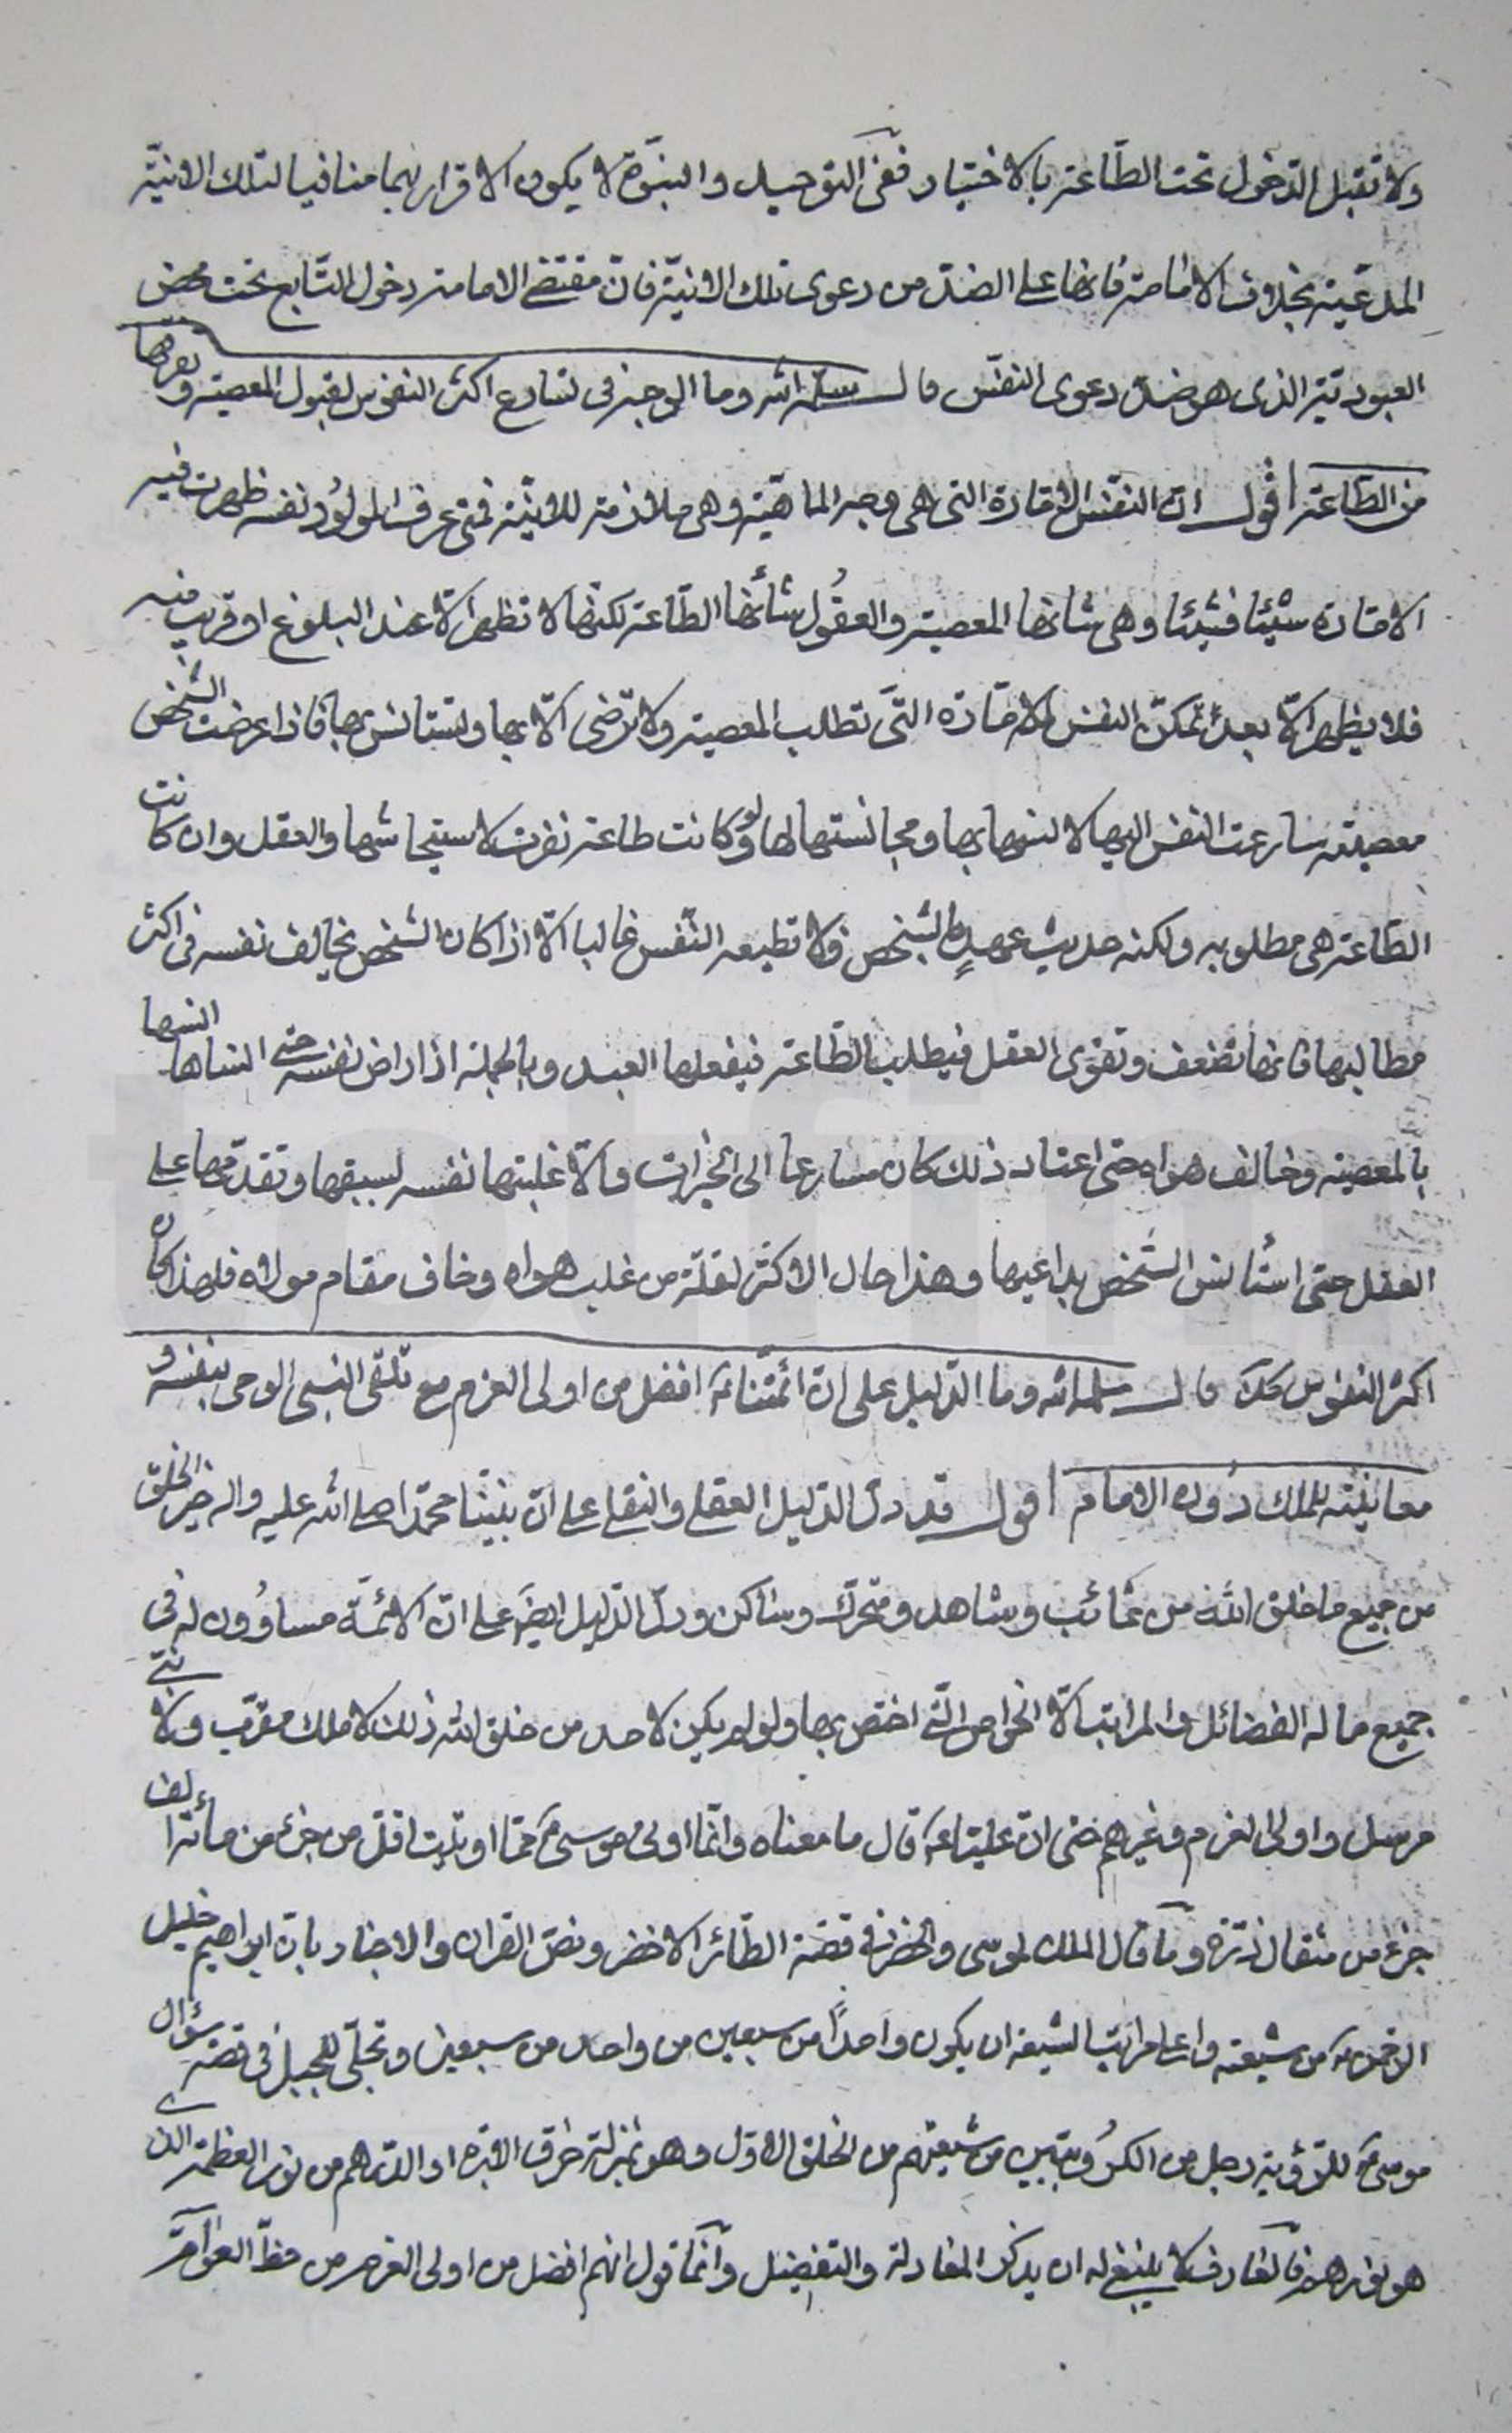 ولا تقبل الدخول تحت الطّاعة بالاختيار ففى التوحيد والنبوّة لا يكون الاقرار بهما منافيا لتلك الانيّة
المدعية بخلاف الامامة فانها على الضدّ من دعوى تلك الانيّة فانّ مقتضى الامامة دخول التّابع تحت محض
العبوديّة الذى هو ضدّ دعوى النفس قال سلمه الله وما الوجه فى تسارع اكثر النفوس لقبول المعصية ونفرتها
من الطّاعة اقول ان النفس الامّارة التى هى وجه الماهيّة وهى ملازمة للانيّة فمتى عرف المولود نفسه ظهرت فيه
الامّارة شيئا فشيئا وهى شانها المعصية والعقول شأنها الطّاعة لكنها لا تظهر الّا عند البلوغ او قريب منه
فلا يظهر الّا بعد تمكّن النفس الامّارة التى تطلب المعصية ولا ترضى الّا بها وتستانس بها فاذا عرضت الشخص
معصية سارعت النفس اليها لانسها بها ومجانستها لها ولو كانت طاعة نفرت لاستيحاشها والعقل وان كانت
الطّاعة هى مطلوبه ولكنه حديث عهدٍ بالشخص فلا تطيعه النّفس غالبا الّا اذا كان الشخص يخالف نفسه فى اكثر
مطالبها فانها تضعف وتقوى العقل فيطلب الطّاعة فيفعلها العبد وبالجملة اذا راض نفسه حتى انساها انسها
بالمعصية وخالف هواه حتى اعتاد ذلك كان مسارعا الى الخيرات والّا غلبتها نفسه لسبقها وتقدّمها على
العقل حتى استأنس الشخص بداعيها وهذا حال الاكثر لقلّة من غلب هواه وخاف مقام مولاه فلهذا كان
اكثر النفوس كذلك قال سلمه الله وما الدّليل على انّ ائمّتنا افضل من اولى العزم مع تلقّى النبى الوحى بنفسه و
معاينته للملك دون الامام اقول قد دلّ الدّليل العقلى والنقلى على انّ نبيّنا محمّدا صلى الله عليه واله خير الخلق
من جميع ما خلق الله من غائب وشاهد ومتحرّك وساكن ودلّ الدّليل ايضا على انّ الائمّة مساوون له فى
جميع ما له الفضائل والمراتب الّا الخواص الّتى اختص بها ولم يكن لاحد من خلق الله ذلك لا ملك مقرّب ولا نبى
مرسل واولى العزم وغيرهم حتى انّ عليّا قال ما معناه وانّما اوتى موسى ممّا اوتيت اقلّ من جزء من مأئة الف
جزء من مثقال ذرّة وما قال الملك لموسى والخضر فى قصّة الطّائر الاخضر ونصّ القران والاخبار بانّ ابراهيم خليل
الرحمن من شيعته واعلى مراتب الشيعة ان يكون واحدًا من سبعين من واحد من سبعين وتجلّى للجبل فى قصّة سؤال
موسى للرّؤية رجل من الكرّوبيّين من شيعتهم من الخلق الاوّل وهو بمنزلة خرق الابرة او الدّرهم من نور العظمة الذى
هو نورهم فالعارف لا ينبغى له ان يذكر المعادلة والتفضيل وانّما قول انهم افضل من اولى العزم من حظّ العوام